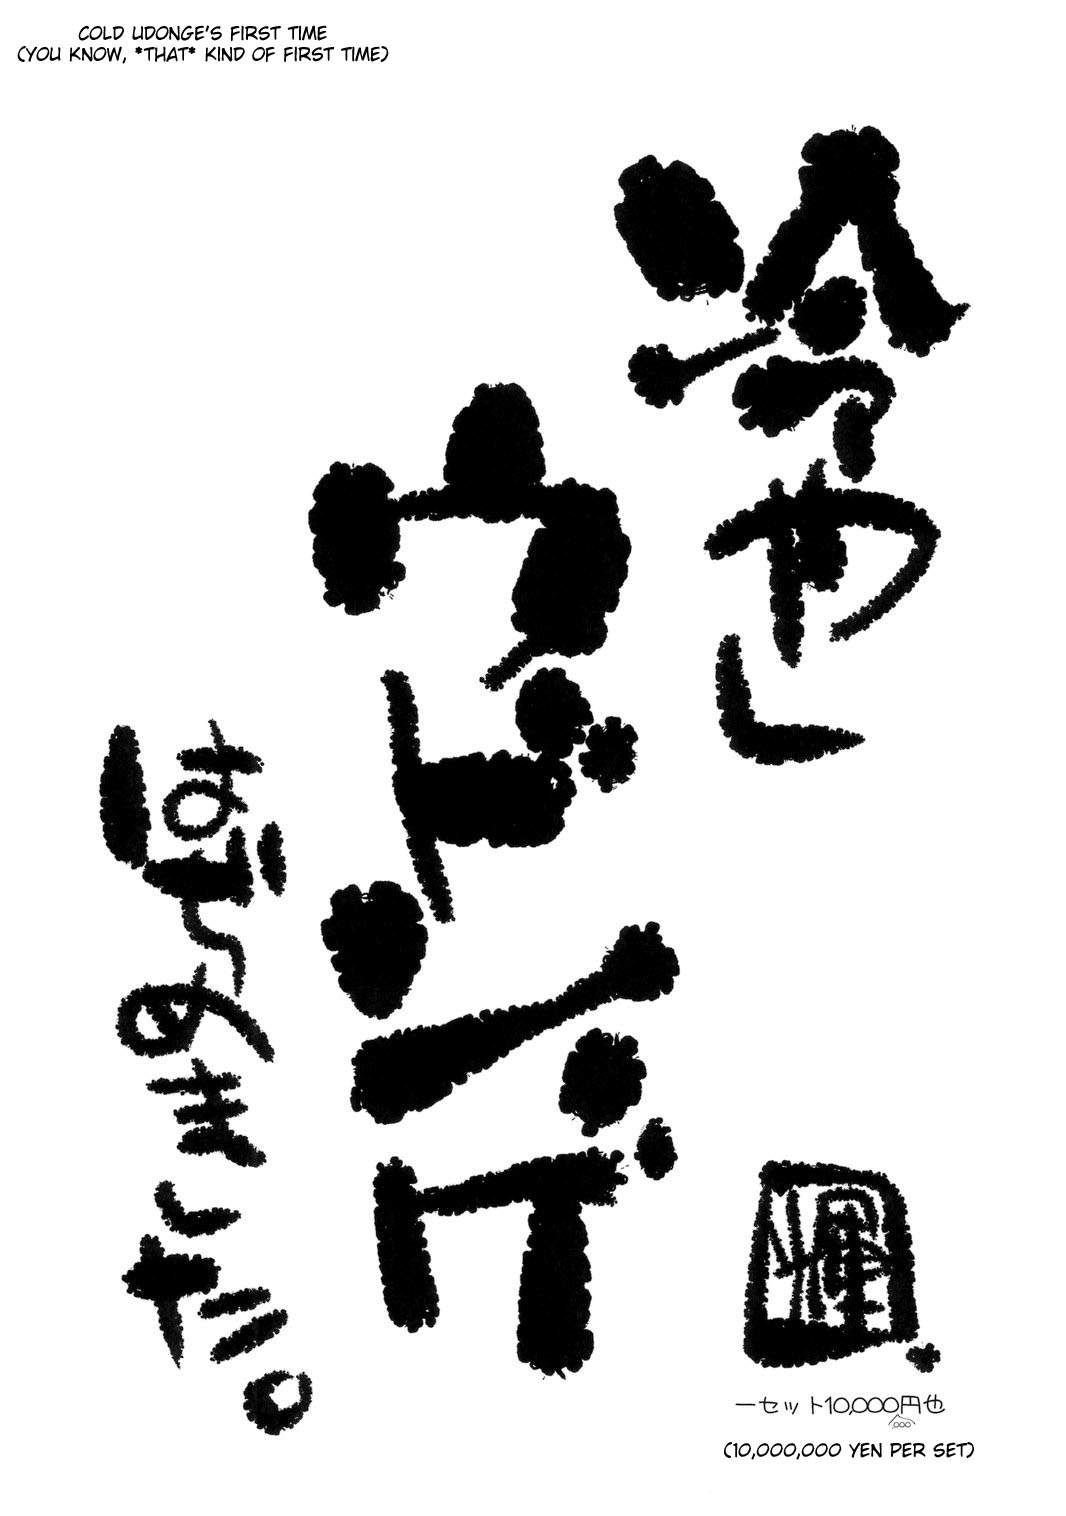 COLD UDONGE'S FIRST TIME
(YOU KNOW, *THAT* KIND OF FIRST TIME)
冷やし
ウドンゲ
はじめました。
輝
一セット10,000円也
,000
(10,000,000 YEN PER SET)